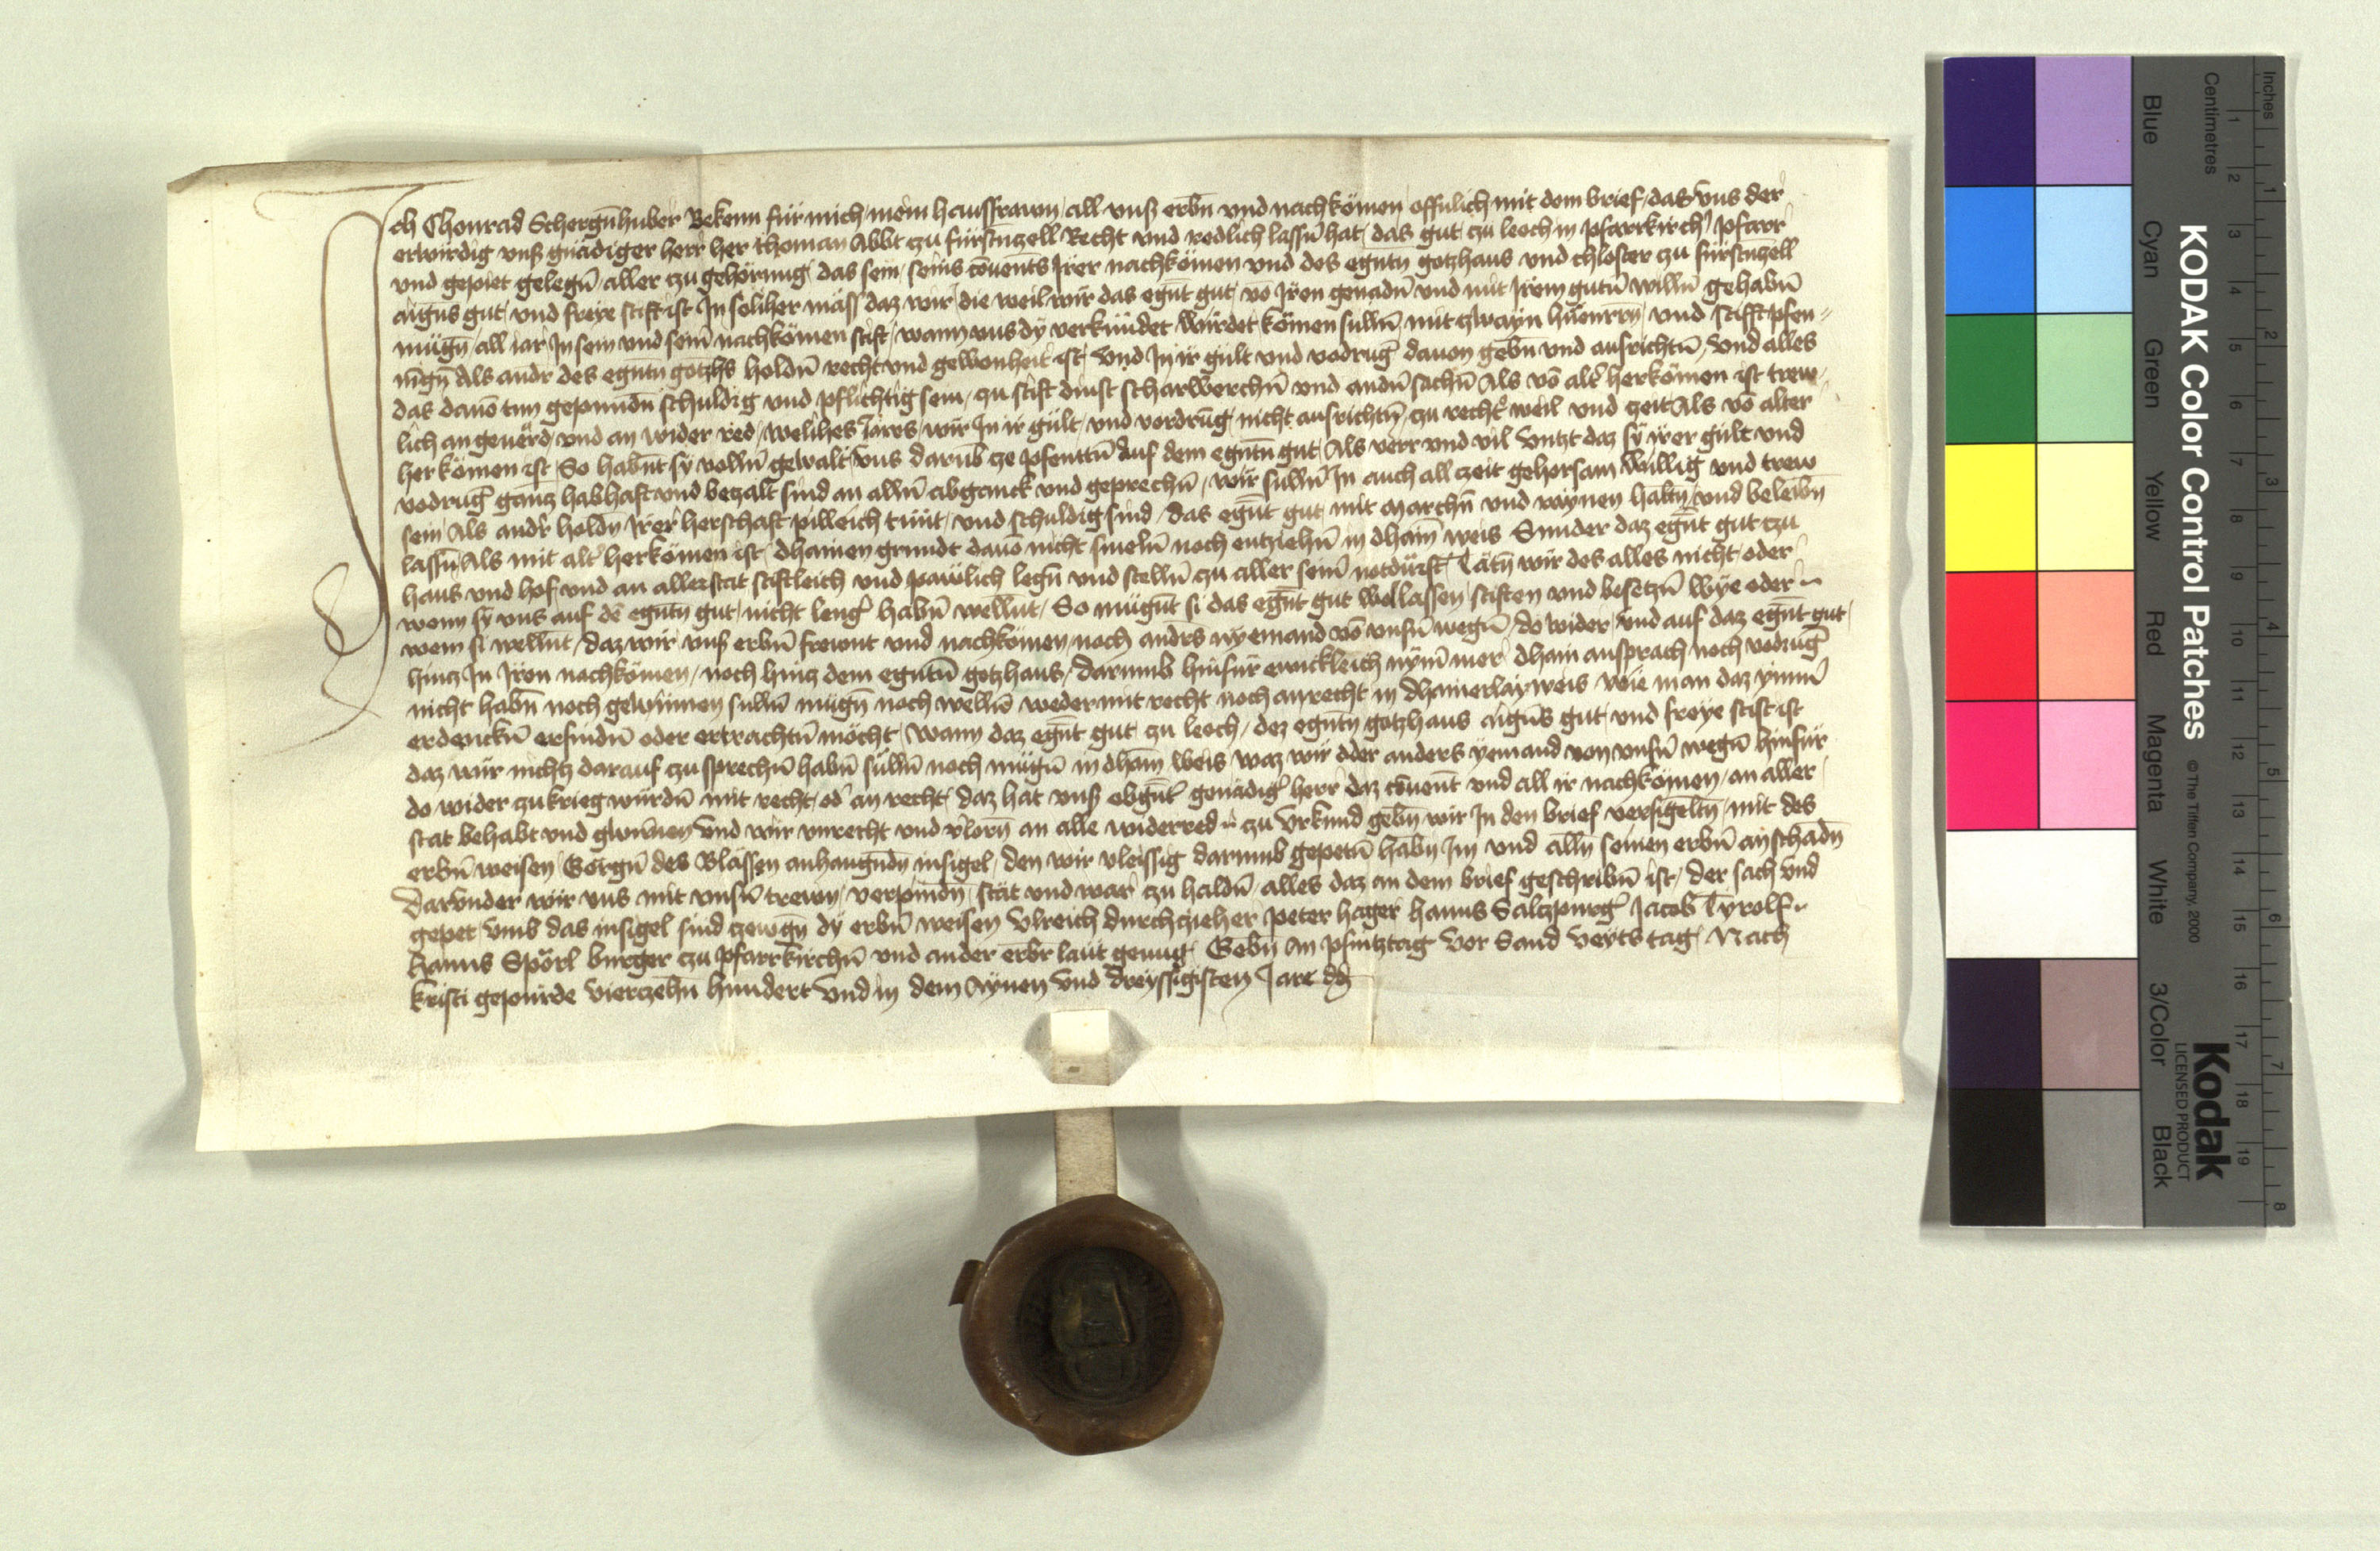 Ich Chonrad Schergn̄huber Bekenn für mich mein haussfrawn all vnß erbn̄ vnd nachkömen offnlich mit dem brief das vns der
erwirdig vnß gnädiger herr her thoman Abbt czu fürstnczell Recht vnd redlich lassn̄ hat das gut czu leoch in pfarrkirch' pfarr
vnd gepiet gelegn̄ aller czu gehörung das sein seins cōuents Irer nachkömen vnd des egn̄tn gotzhaus vnd chloster czu fürstnzell
aigns gut vnd freye stift ist In solher mass daz wir die weil wir das egn̄t gut vō Iren genadn̄ vnd mit Irem gutn̄ willn̄ gehabn̄
mügn̄ all iar In sein vnd seinr̄ nachkömen stift wann vns dy verkündet würdet kömen sulln̄ mit zwayn huenrrn̄ vnd stifftpfen=
nīgn̄ Als andr des egn̄tn gotzhs holdn̄ recht vnd gewonheit ist vnd In ir gült vnd vodrug' dauon gebn̄ vnd ausrichtn̄ vnd alles
das dauō tun gepundn̄ schuldig vnd pflichtig sein zu stift dinst scharwerchn̄ vnd andn̄ sachn̄ Als vō alt' herkömen ist trew
lich an geuërd vnd an wider red welihes Iares wir In ir gült vnd vordrūg nicht ausrichtn̄ zu recht' weil vnd zeit Als vō alter
herkömen ist So habnt sy volln̄ gewalt vns darub cze pfenttn̄ auf dem egn̄tn gut Als verr vnd vil vntzt daz sy irer gült vnd
vodrug' gantz habhaft vnd betzalt sind an alln̄ abganck vnd geprechn̄ wir sulln̄ In auch all zeit gehorsam willig vnd trew
sein Als andr holdn Irer herschaft pilleich tünt vnd schuldig sind das egn̄t gut mit marchn̄ vnd raynen haltn̄ vnd beleibn̄
lassn̄ Als mit alt' herkömen ist dhainen grundt dauō nicht smeln̄ noch entziehn̄ in dhain̄ weis Sunder daz egn̄t gut czu
haus vnd hof vnd an aller stat stiftleich vnd pawlich legn̄ vnd stelln̄ zu aller sein̄ notdürft Tätn̄ wir des alles nicht oder
wenn sy vns auf dē egn̄tn gut nicht leng' habn̄ wellnt So mügn̄t si das egn̄t gut wol lassen stiften vnd besetzn̄ wye oder
wem si wellnt daz wir vnß erbn̄ frewnt vnd nachkömen noch andrs nyemand vō vnsn̄ wegn̄ do wider vnd auf daz egn̄t gut
hintz In Iren nachkömen noch hintz dem egn̄tn̄ gotzhaus darumb hinfür ewickleich nym̄mer dhain ansprach noch vodrug'
nicht habn̄ noch gewinnen sulln̄ mügn̄ noch welln̄ weder mit recht noch an recht in dhainerlay weis wie man daz ymm̄
erdenckn̄ erfindn̄ oder ertrachtn̄ möcht wann daz egn̄t gut zu leoch dez egn̄tn gotzhaus aigns gut vnd freye stift ist
daz wir nichtz darauf zu sprechn̄ habn̄ sulln̄ noch mügn̄ in dhain̄ weis waz wir oder anders yemand von vnsn̄ wegn̄ hinfür
do wider zu krieg würdn̄ mit recht od' an recht daz hat vnß obgn̄t' genädig' herr daz cōuent vnd all ir nachkömen an aller
stat behabt vnd gwūnen vnd wir vnrecht vnd v'lorn̄ an alle widerred zu vrkund gebn̄ wir In den brief versigeltn̄ mit des
erbn̄ weisen Görgn̄ des Blässen anhangndn̄ insigel den wir vleissig darumb gepetn̄ habn̄ Im vnd alln̄ seinen erbn̄ an schadn̄
darvnder wir vns mit vnsn̄ trewn verpindn̄ stät vnd war zu haldn̄ alles daz an dem brief geschribn̄ ist der sach vnd
gepet vmb das insigel sind zewgn̄ dy erbn̄ weisen Vlreich durchzieher peter hager hanns Saltzpurg' Jacob Tyrolf
hanns Spörl burger czu pfarrkirchn̄ vnd ander erbr laut genug Gebn̄ An pfintztag vor Sand veyts tag Nach
kristi gepurde vierczehn hundert vnd in dem Aynen vnd dreyssigisten Jare
KODAK Color Control Patches
© The Tiffen Company, 2000
Kodak
LICENSED PRODUCT
Blue Cyan Green Yellow Red Magenta White 3/Color Black
Centimetres 1 2 3 4 5 6 7 8 9 10 11 12 13 14 15 16 17 18 19
Inches 1 2 3 4 5 6 7 8